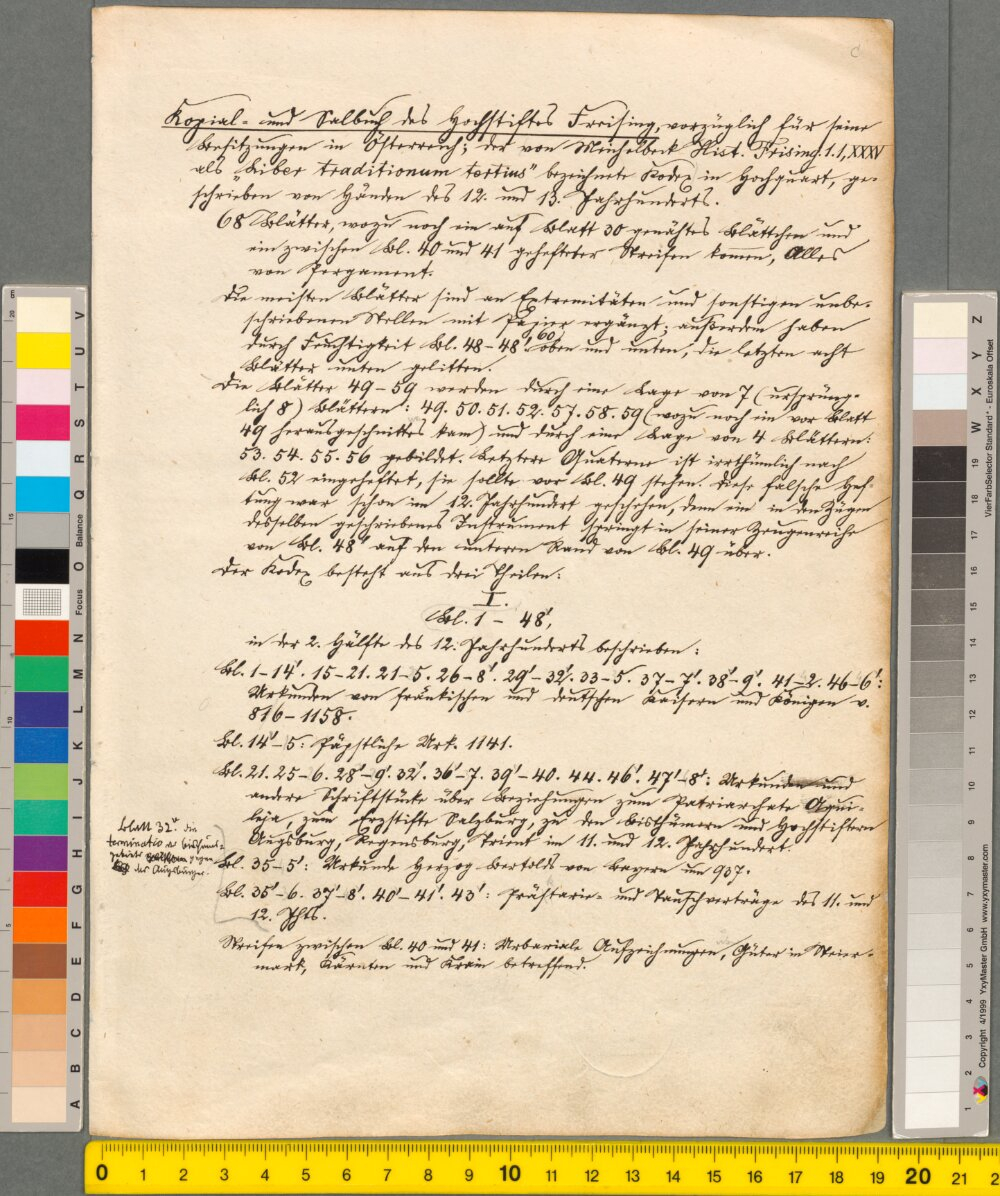 Kopial- und Salbuch des Hochstiftes Freising, vorzüglich für seine
Besitzungen in Österreich; der von Meichelbeck Hist. Frising. 1.1, XXXV
als „Liber traditionum tertius" bezeichnete Kodex in Hochquart, ge-
schrieben von Händen des 12. und 13. Jahrhunderts.
68 Blätter, wozu noch ein auf Blatt 30 genähtes Blättchen und
ein zwischen Bl. 40 und 41 gehefteter Streifen kommen, Alles
von Pergament.
Die meisten Blätter sind an Extremitäten und sonstigen unbe-
schriebenen Stellen mit Papier ergänzt; außerdem haben
durch Feuchtigkeit Bl. 48–48' oben und unten, die letzten acht
60
Blätter unten gelitten.
Die Blätter 49–59 werden durch eine Lage von 7 (ursprüng-
lich 8) Blättern: 49. 50. 51. 52. 57. 58. 59 (wozu noch ein vor Blatt
49 herausgeschnittes kam) und durch eine Lage von 4 Blättern:
53. 54. 55. 56 gebildet. Letztere Quaterne ist irrthümlich nach
Bl. 52 eingeheftet, sie sollte vor Bl. 49 stehen. Diese falsche Hef-
tung war schon im 12. Jahrhundert geschehen, denn ein in den Zügen
desselben geschriebenes Instrument springt in seiner Zeugenreihe
von Bl. 48' auf den unteren Rand von Bl. 49 über.
Der Kodex besteht aus drei Theilen:
I.
Bl. 1 – 48',
in der 2. Hälfte des 12. Jahrhunderts beschrieben:
Bl. 1–14'. 15–21. 21–5. 26–8'. 29'–32'. 33–5. 37–7'. 38'–9'. 41–2. 46–6':
Urkunden von fränkischen und deutschen Kaisern und Königen v.
816–1158.
Bl. 14'–5: Päpstliche Urk. 1141.
Bl. 21. 25–6. 28'–9'. 32'. 36'–7. 39'–40. 44. 46'. 47'–8': Urkunden und
andere Schriftstücke über Beziehungen zum Patriarchate Aqui-
leja, zum Erzstifte Salzburg, zu den Bisthümern und Hochstiftern
Augsburg, Regensburg, Trient im 11. und 12. Jahrhundert.
Blatt 32v. die
terminatio
gegen
der Augsburger.
Bl. 35–5': Urkunde Herzog Bertolds von Bayern um 937.
Bl. 35'–6. 37'–8'. 40'–41'. 43': Prästarie- und Tauschverträge des 11. und
12. Jhts.
Streifen zwischen Bl. 40 und 41: Urbariale Aufzeichnungen, Güter in Steier-
mark, Kärnten und Krain betreffend.
VierFarbSelector Standard* - Euroskala Offset
Copyright 4/1999 YxyMaster GmbH www.yxymaster.com
Balance
Focus
A B C D E F G H I J K L M N O Q R S T U V
W X Y Z
1 2 3 4 5 6 7 8 9 10 11 12 13 14 15 16 17 18 19
0 1 2 3 4 5 6 7 8 9 10 11 12 13 14 15 16 17 18 19 20 21